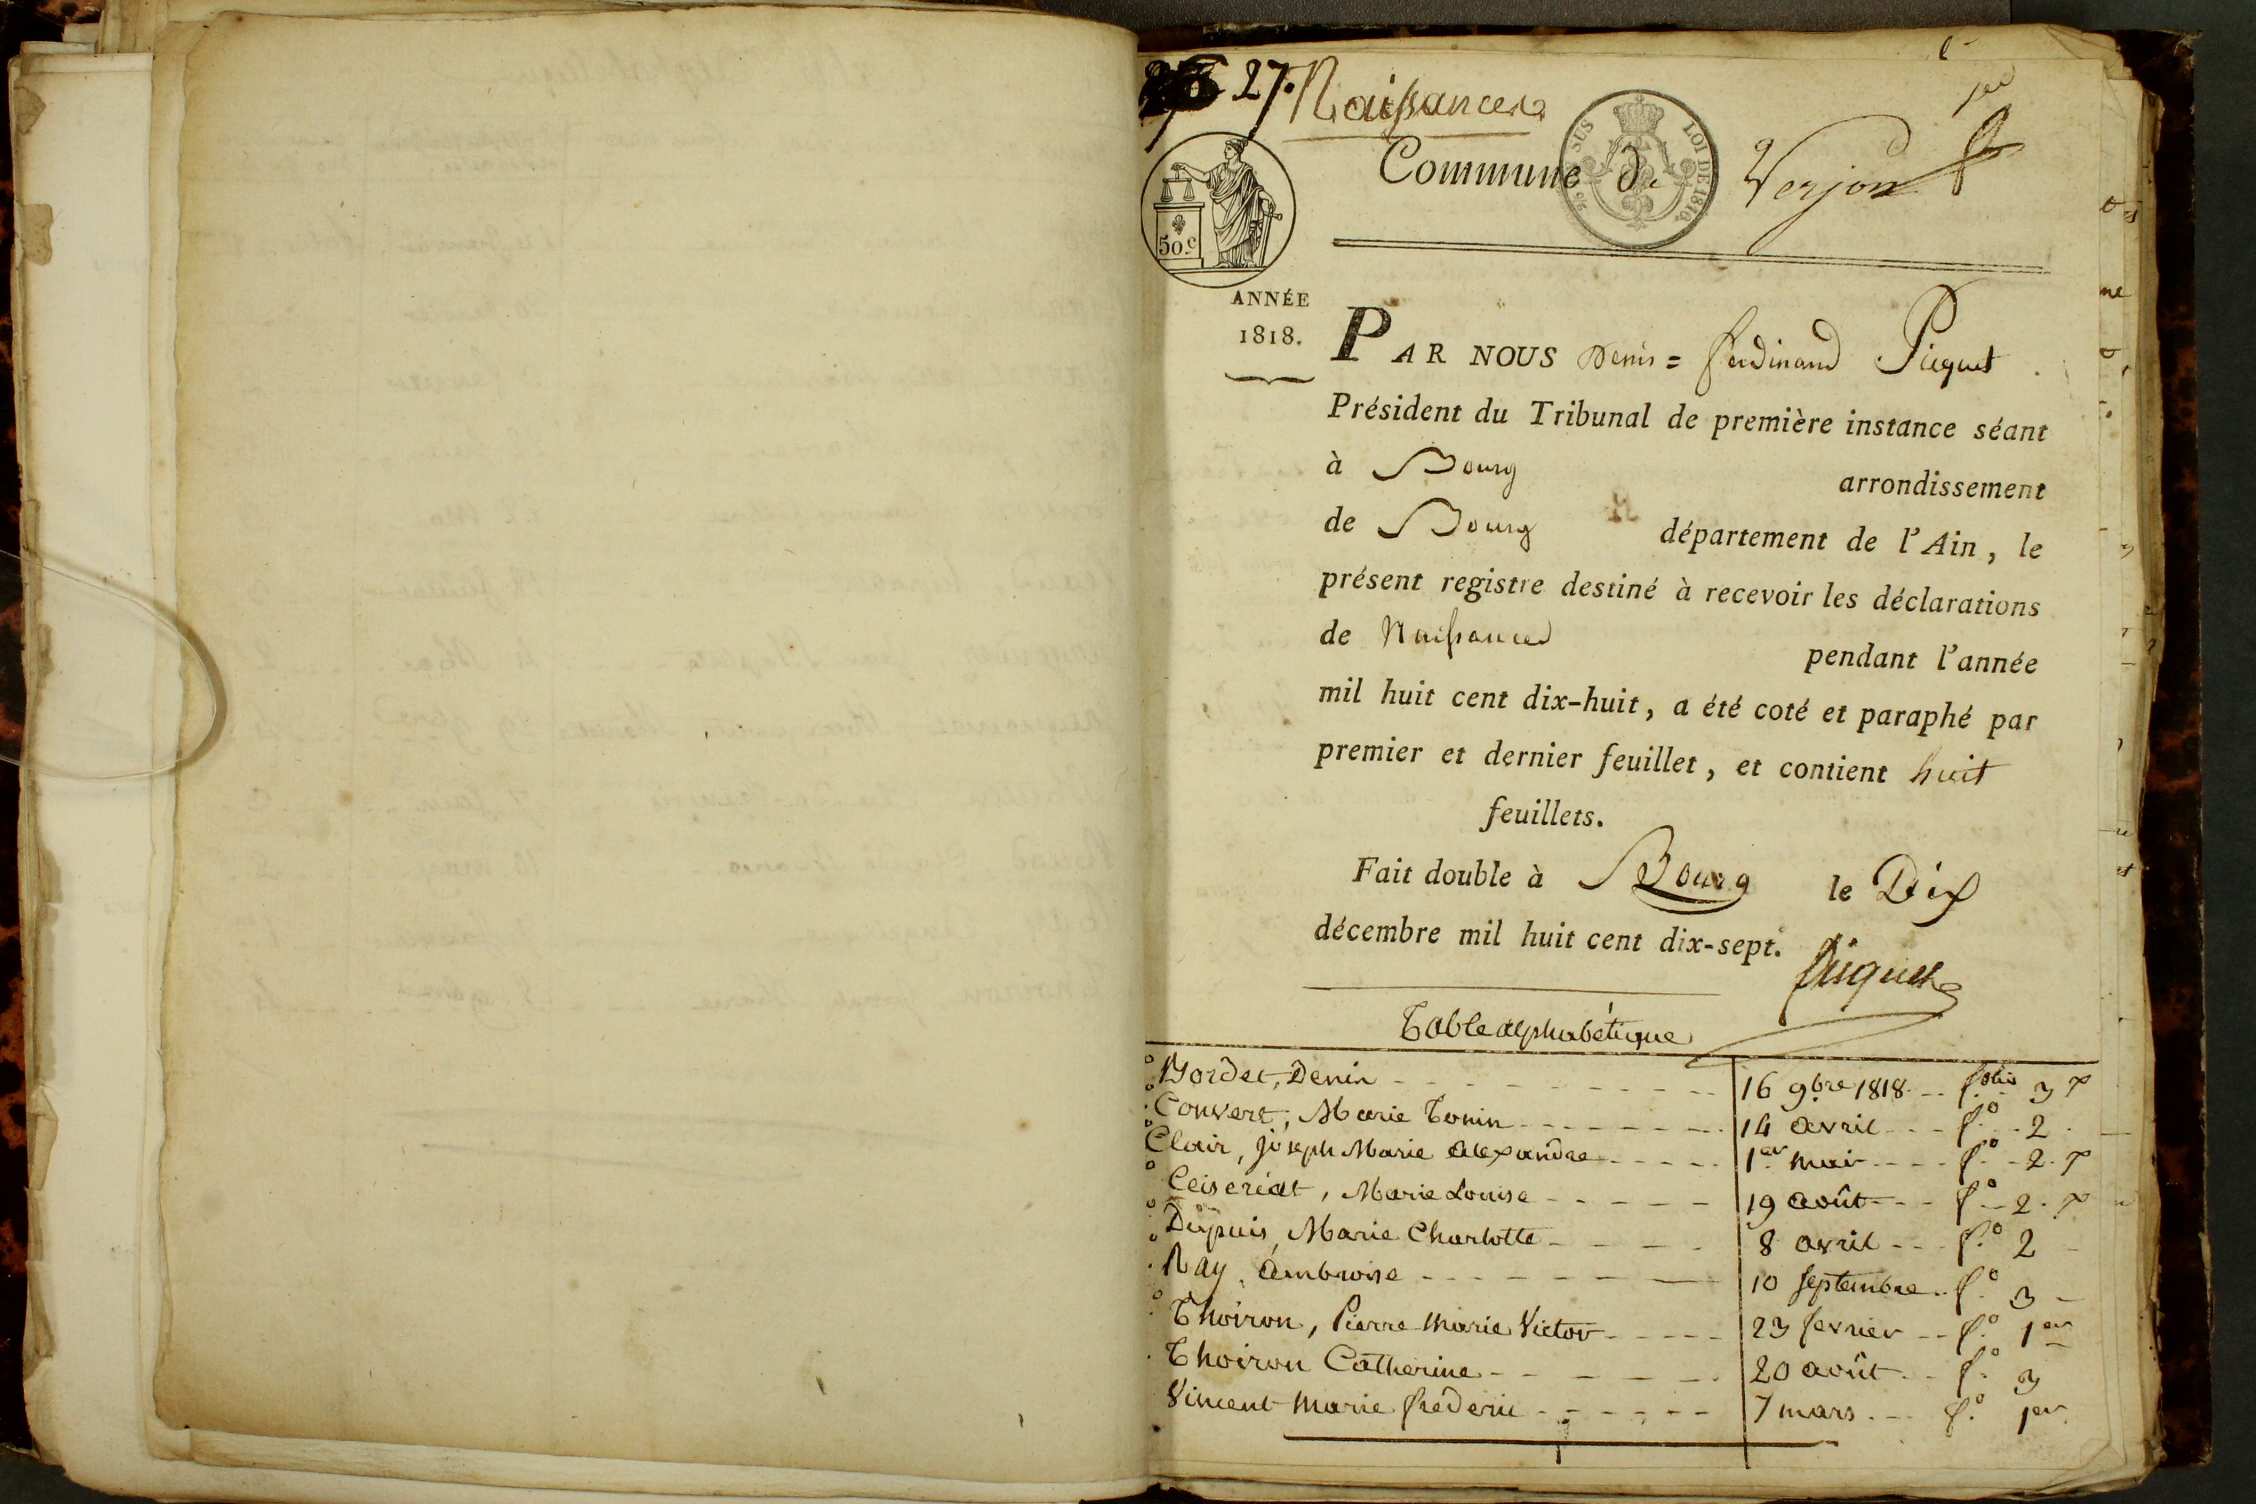 27. Naissances
1er
Commune de Verjon
EN SUS
LOI DE 1816.
50.c
ANNÉE
1818.
PAR NOUS Denis = ferdinand Piquet
Président du Tribunal de première instance séant
à Bourg arrondissement
de Bourg département de l'Ain, le
présent registre destiné à recevoir les déclarations
de Naissances pendant l'année
mil huit cent dix-huit, a été coté et paraphé par
premier et dernier feuillet, et contient huit
feuillets.
Fait double à Bourg le Dix
décembre mil huit cent dix-sept.
Piquet
Table alphabétique
Bordet, Denis 16 9bre 1818 folio 3
Convert, Marie Tonin 14 avril f.o 2
Clair, joseph Marie alexandre 1er mai f.o 2
Ceiseriat, Marie Louise 19 août f.o 2
Dupuis, Marie Charlotte 8 avril f.o 2
Ray, ambroise 10 septembre f.o 3
Thoiron, Pierre Marie Victor 23 fevrier f.o 1er
Thoiron Catherine 20 août f.o 3
Vincent Marie frederic 7 mars f.o 1er